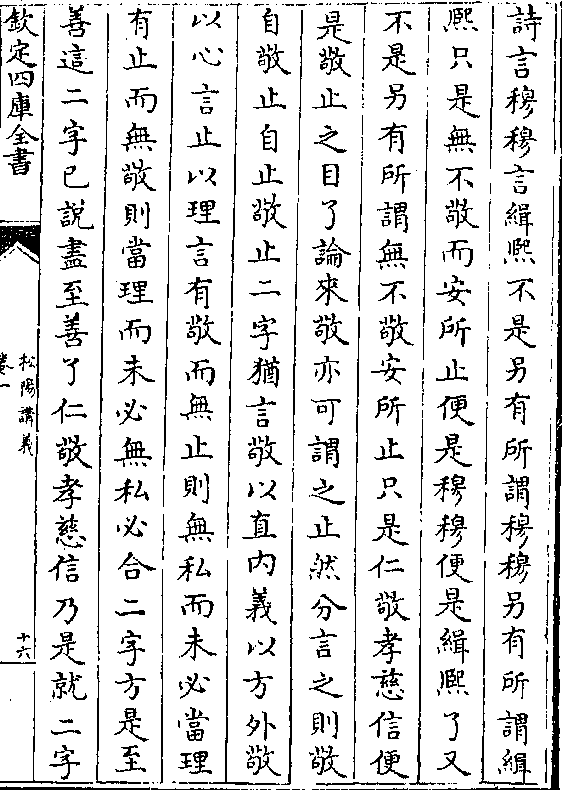 詩言穆穆言緝熙不是另有所謂穆穆另有所謂緝
熙只是無不敬而安所止便是穆穆便是緝熙了又
不是另有所謂無不敬安所止只是仁敬孝慈信便
是敬止之目了論來敬亦可謂之止然分言之則敬
自敬止自止敬止二字猶言敬以直内義以方外敬
以心言止以理言有敬而無止則無私而未必當理
有止而無敬則當理而未必無私必合二字方是至
善這二字已說盡至善了仁敬孝慈信乃是就二字
欽定四庫全書
松陽講義
卷一
十六